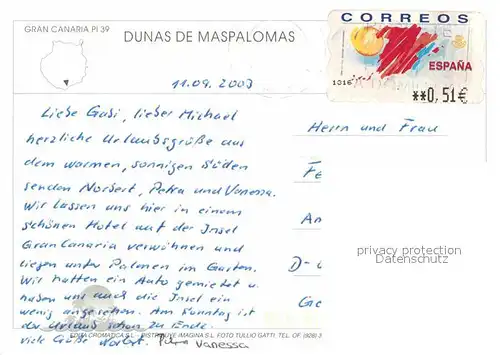 GRAN CANARIA PI 39
DUNAS DE MASPALOMAS
CORREOS
ESPAÑA
1016
**0,51€
11.09.2003
Liebe Gabi, lieber Michael
herzliche Urlaubsgrüße aus
dem warmen, sonnigen Süden
senden Norbert, Petra und Vanessa.
Wir lassen uns hier in einem
schönen Hotel auf der Insel
Gran Canaria verwöhnen und
liegen unter Palmen im Garten.
Wir hatten ein Auto gemietet u.
haben uns auch die Insel ein
wenig angesehen. Am Sonntag ist
der Urlaub schon zu Ende.
viele Grüße Norbert. Petra Vanessa
Herrn und Frau
Fe
An
D-
Ge
privacy protection
Datenschutz
EDITA CROMATICA S.L. - DISTRIBUYE IMAGINA S.L. FOTO TULLIO GATTI, TEL. OF (928) 3